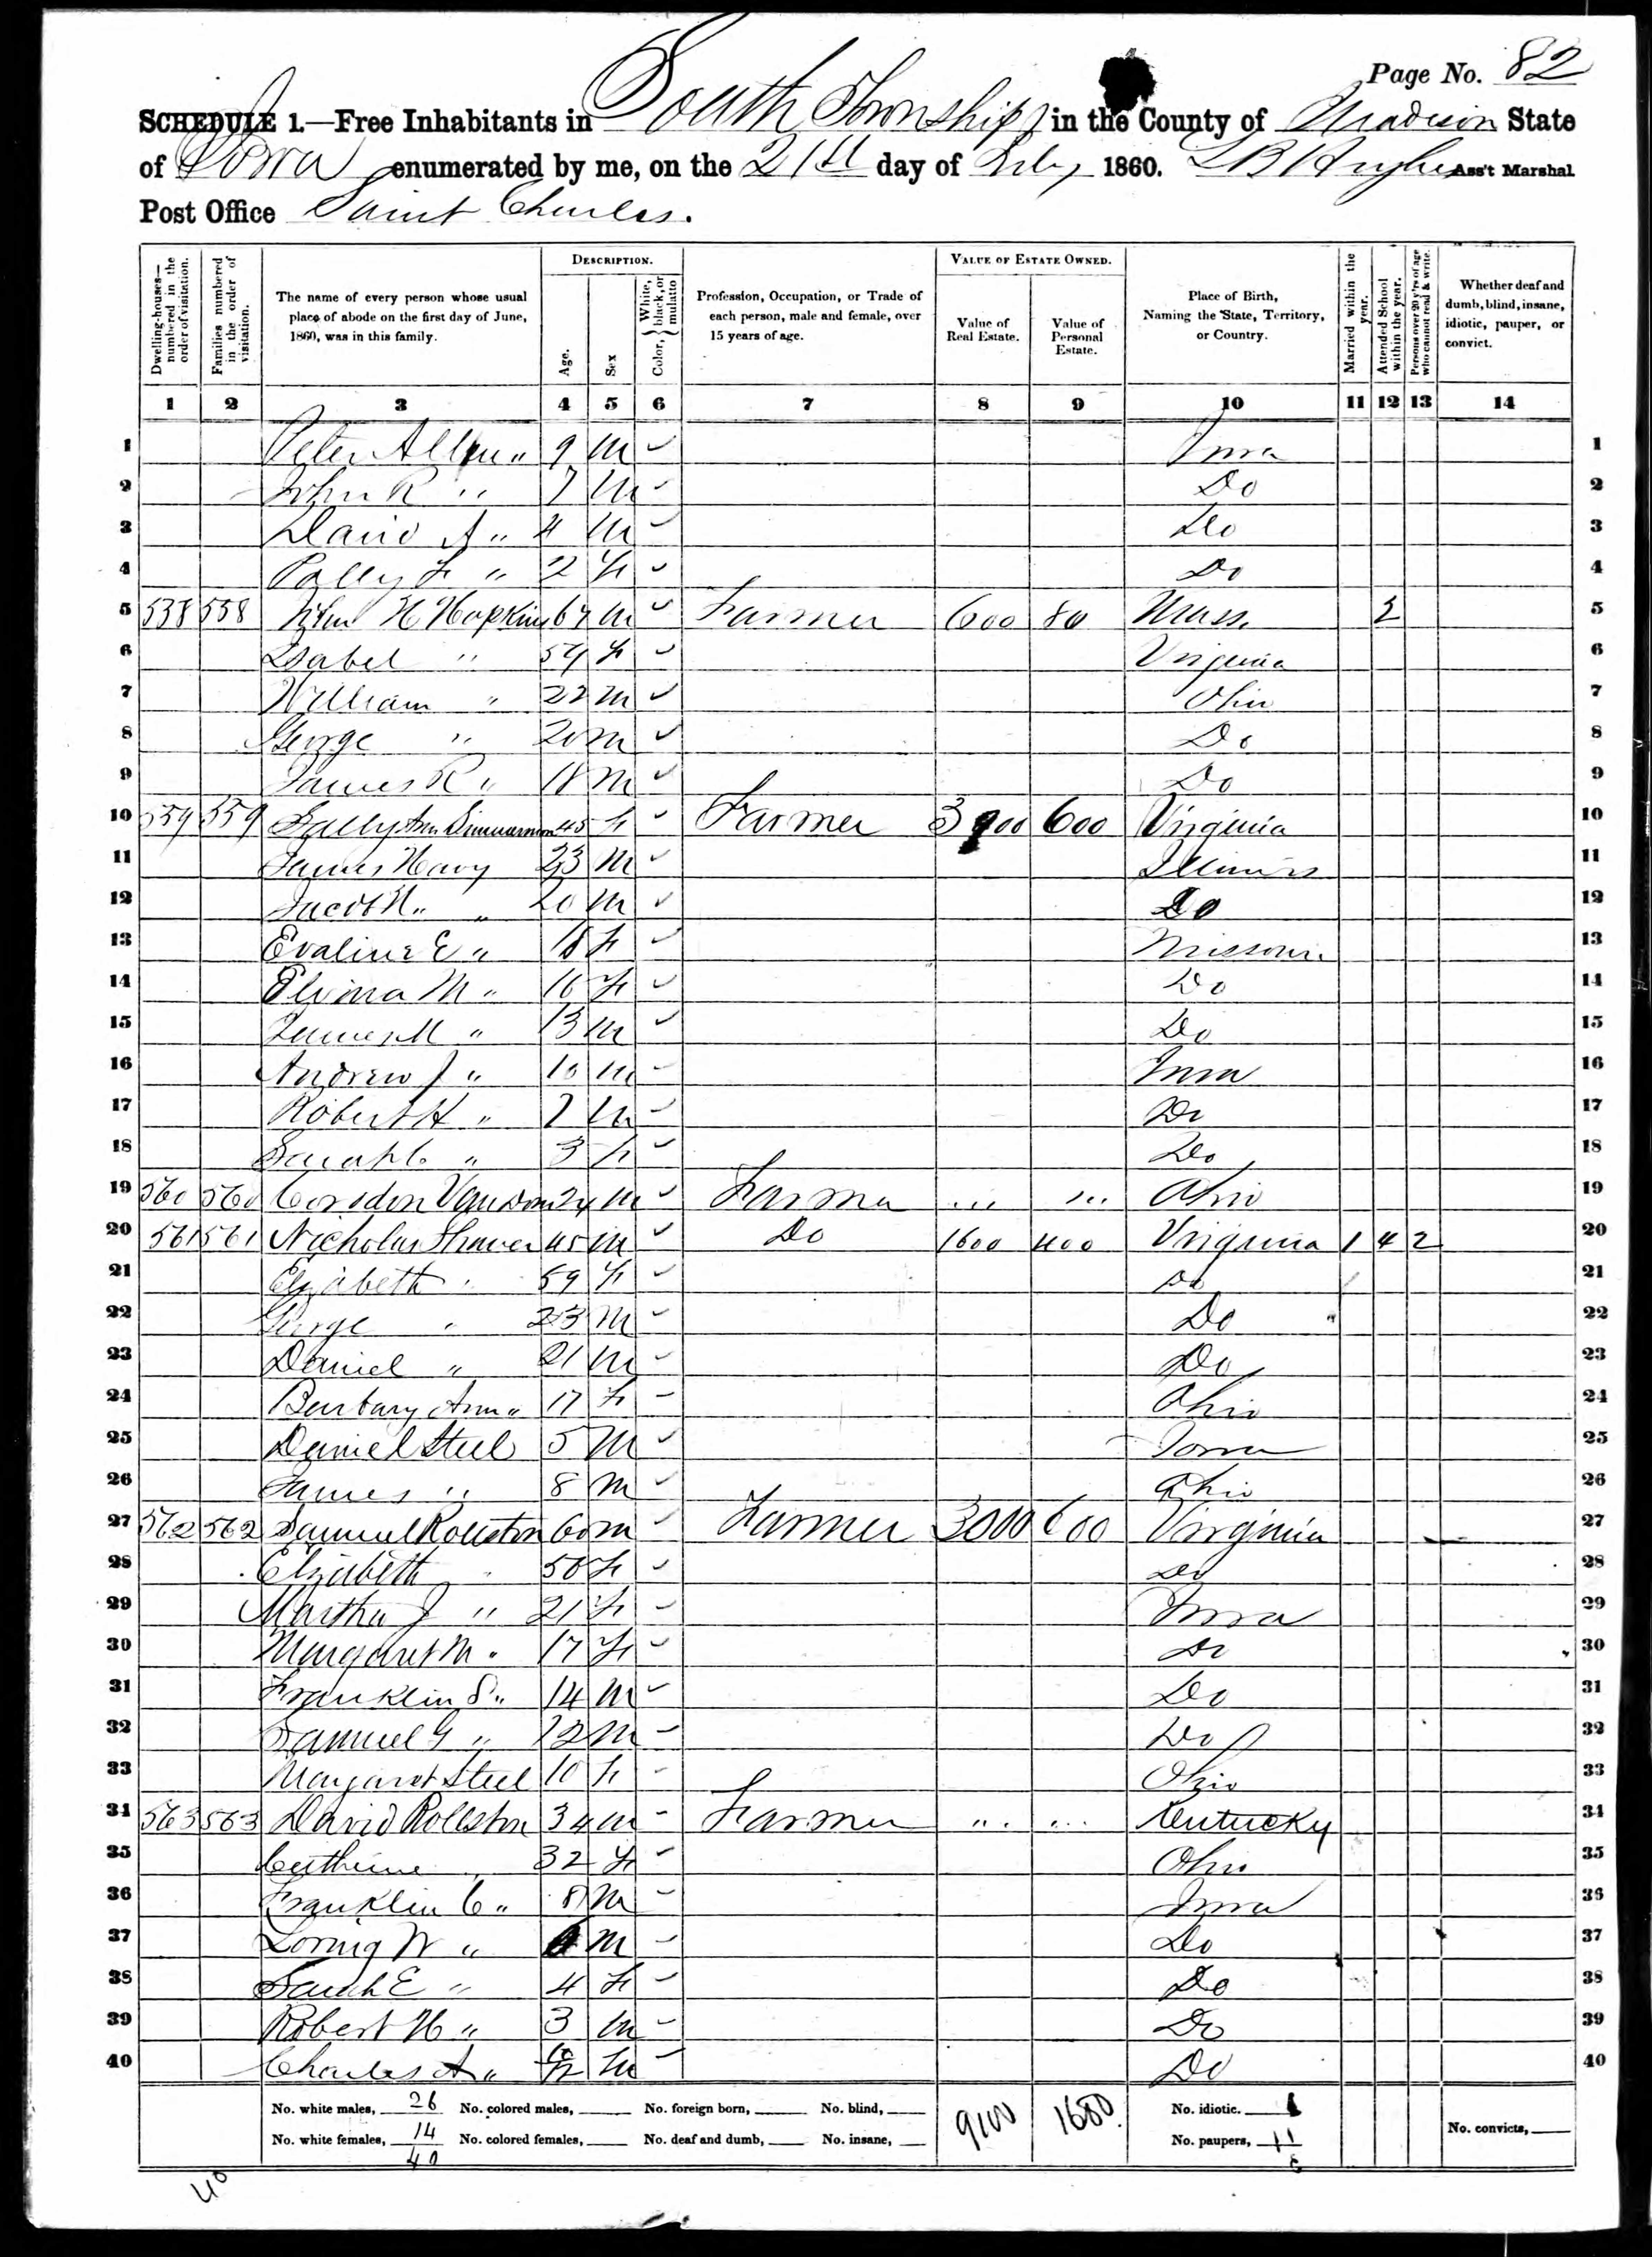 Page No. 82
SCHEDULE 1.—Free Inhabitants in South Township in the County of Madison State
of Iowa enumerated by me, on the 21st day of July 1860. L B Hughes Ass't Marshal
Post Office Saint Charles.
Dwelling-houses—numbered in the order of visitation.
Families numbered in the order of visitation.
The name of every person whose usual place of abode on the first day of June, 1860, was in this family.
DESCRIPTION.
Age.
Sex
Color, White, black, or mulatto
Profession, Occupation, or Trade of each person, male and female, over 15 years of age.
VALUE OF ESTATE OWNED.
Value of Real Estate.
Value of Personal Estate.
Place of Birth, Naming the State, Territory, or Country.
Married within the year.
Attended School within the year.
Persons over 20 y'rs of age who cannot read & write.
Whether deaf and dumb, blind, insane, idiotic, pauper, or convict.
1 2 3 4 5 6 7 8 9 10 11 12 13 14
1 Peter Allen " 9 m ✓ Iowa 1
2 John R " 7 m ✓ Do 2
3 David A " 4 m ✓ Do 3
4 Polly F " 2 f ✓ Do 4
5 538 558 John H Hopkins 67 m ✓ Farmer 600 80 Mass. 2 5
6 Isabel " 54 f ✓ Virginia 6
7 William " 22 m ✓ Ohio 7
8 George " 20 m ✓ Do 8
9 James R " 18 m ✓ Do 9
10 559 559 Sally Ann 45 f ✓ Farmer 3900 600 Virginia 10
11 James 23 m ✓ Illinois 11
12 Jacob N " " 20 m ✓ Do 12
13 Evaline E " 18 f ✓ Missouri 13
14 Elvina M " 16 f ✓ Do 14
15 James M " 13 m ✓ Do 15
16 Andrew J " 10 m ✓ Iowa 16
17 Robert H " 7 m ✓ Do 17
18 Sarah C " 3 f ✓ Do 18
19 560 560 24 m ✓ Farmer ... ... Ohio 19
20 561 561 Nicholas Shaver 45 m ✓ Do 1600 400 Virginia 1 4 2 20
21 Elizabeth " 59 f ✓ Do 21
22 George " 23 m ✓ Do 22
23 Daniel " 21 m ✓ Do 23
24 Barbary Ann " 17 f ✓ Ohio 24
25 Daniel Steel 5 m ✓ Iowa 25
26 James " 8 m ✓ Ohio 26
27 562 562 Samuel Rollston 60 m ✓ Farmer 3000 600 Virginia 27
28 Elizabeth " 50 f ✓ Do 28
29 Martha J " 21 f ✓ Iowa 29
30 Margaret M " 17 f ✓ Do 30
31 Franklin S " 14 m ✓ Do 31
32 Samuel G " 12 m ✓ Do 32
33 Margaret Steel 10 f ✓ Ohio 33
34 563 563 David Rollston 34 m ✓ Farmer " . " .. Kentucky 34
35 Catherine " 32 f ✓ Ohio 35
36 Franklin C " 8 m ✓ Iowa 36
37 Loring W " m ✓ Do 37
38 Sarah E " 4 f ✓ Do 38
39 Robert H " 3 m ✓ Do 39
40 Charles A " 10/12 m ✓ Do 40
No. white males, 26 No. colored males, No. foreign born, No. blind, 9100 1680. No. idiotic.
No. white females, 14 No. colored females, No. deaf and dumb, No. insane, No. paupers, 11 No. convicts,
40
40